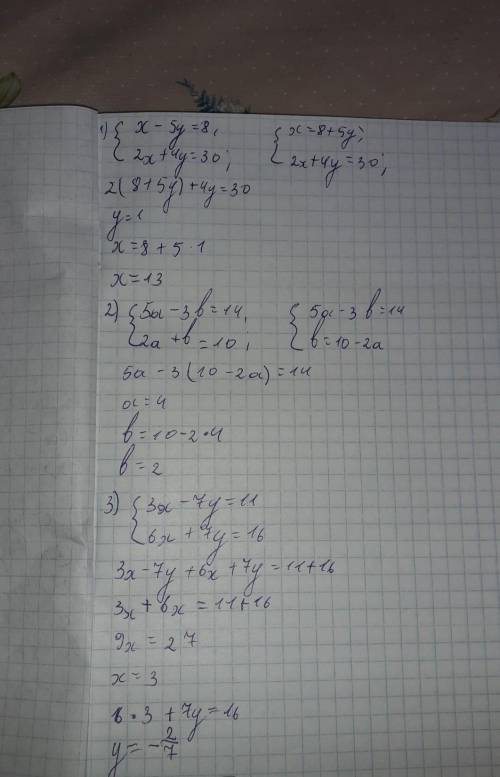 1) { x - 5y = 8, { x = 8 + 5y;
2x + 4y = 30; 2x + 4y = 30;
2(8 + 5y) + 4y = 30
y = 1
x = 8 + 5 · 1
x = 13
2) { 5a - 3b = 14, { 5a - 3b = 14
2a + b = 10; b = 10 - 2a
5a - 3(10 - 2a) = 14
a = 4
b = 10 - 2 · 4
b = 2
3) { 3x - 7y = 11
6x + 7y = 16
3x - 7y + 6x + 7y = 11 + 16
3x + 6x = 11 + 16
9x = 27
x = 3
6 · 3 + 7y = 16
y = -2/7